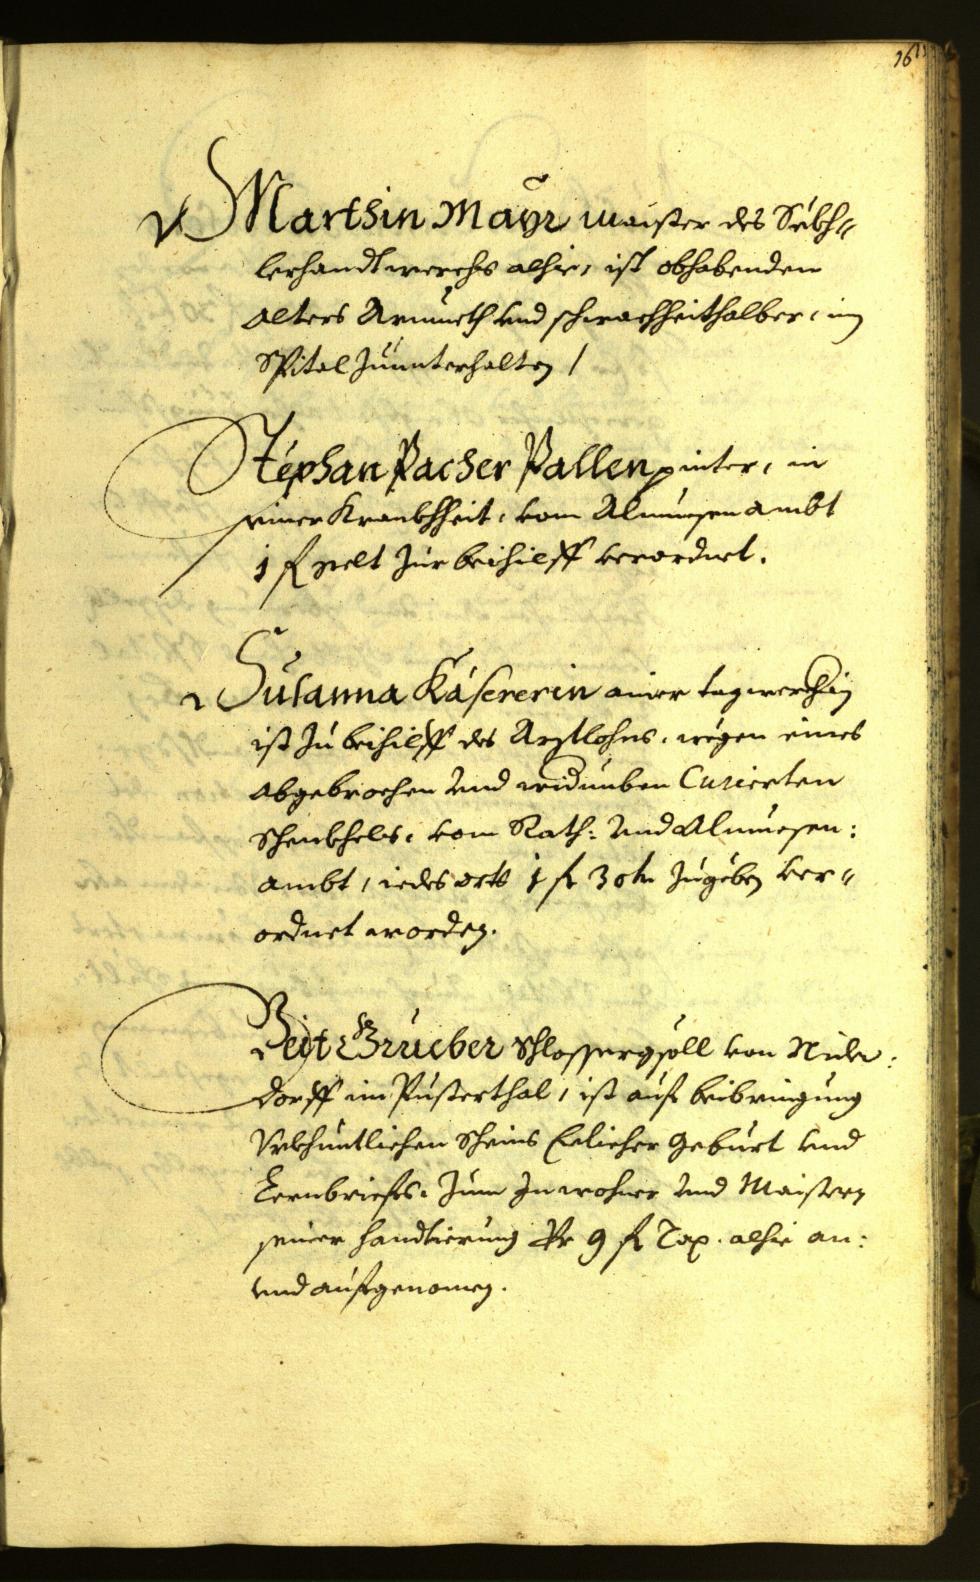 16
Marthin Mayr maister des Säckh-
lerhandtwerchs alhie, ist obhabenden
alters Armueth vnd schwachheithalber, im
Spital zuunterhalten /
Stephan Pacher Pallenpinter, in
seiner Kranckhheit, vom Almuesen ambt
1 f gelt zur beihilff verordnet.
Susanna Käsererin ainer tagwercherin
ist zu beihilff des Arztlohns, wegen eines
abgebrochen vnd widumben Curierten
Schenckhels, vom Rath: vnd Almuesen:
ambt, iedes orts 1 f 30 kr zugeben ver-
ordnet worden.
Veit Brucker Schlossergsöll von Nider:
dorff im Pusterthal, ist auf beibringung
Vrkhuntlichen Scheins Eelicher geburt vnd
Lernbriefs, zum Inwohner vnd Maistern
seiner handtierung Pr 9 f Tax. alhie an:
vnd aufgenomen.